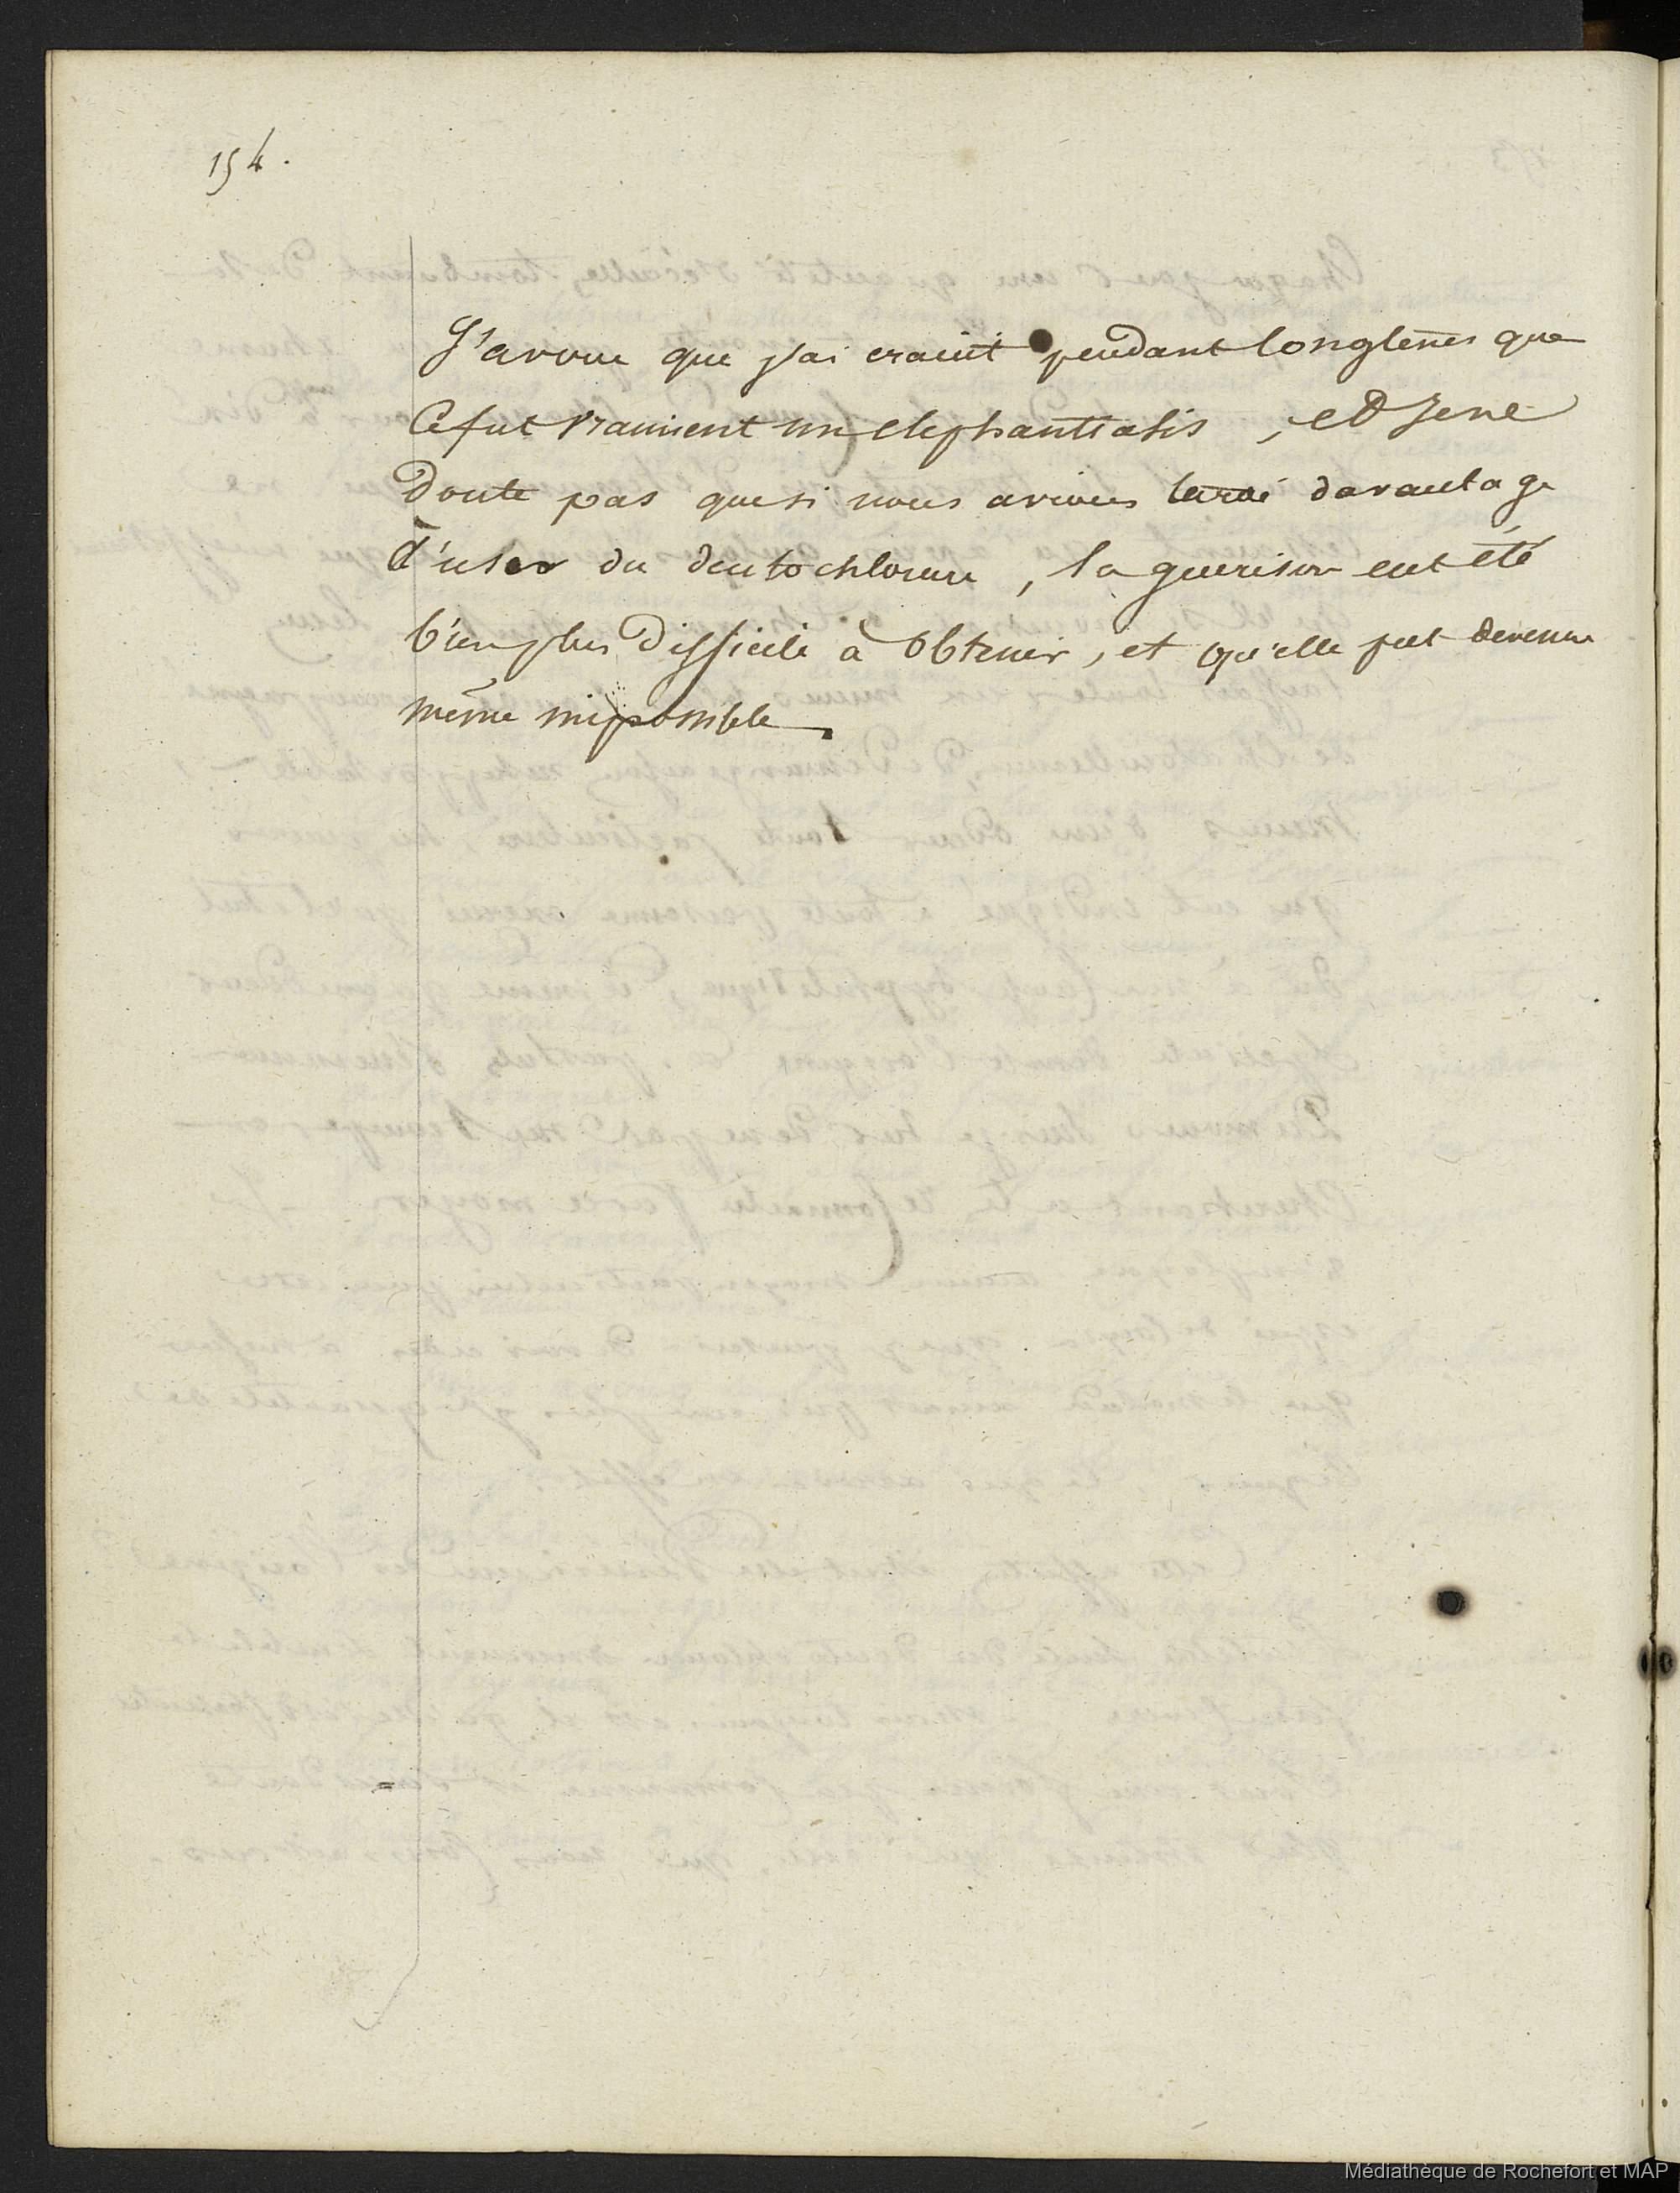 154.
J'avoue que j'ai craint pendant longtems que
Ce fut vraiment un elephantiasis, et Je ne
Doute pas que si nous avions tardé davantage
d'user du deutochlorure, la guerison eut été
bien plus Difficile à Obtenir, et qu'elle fut devenue
même impossible.
Médiathèque de Rochefort et MAP